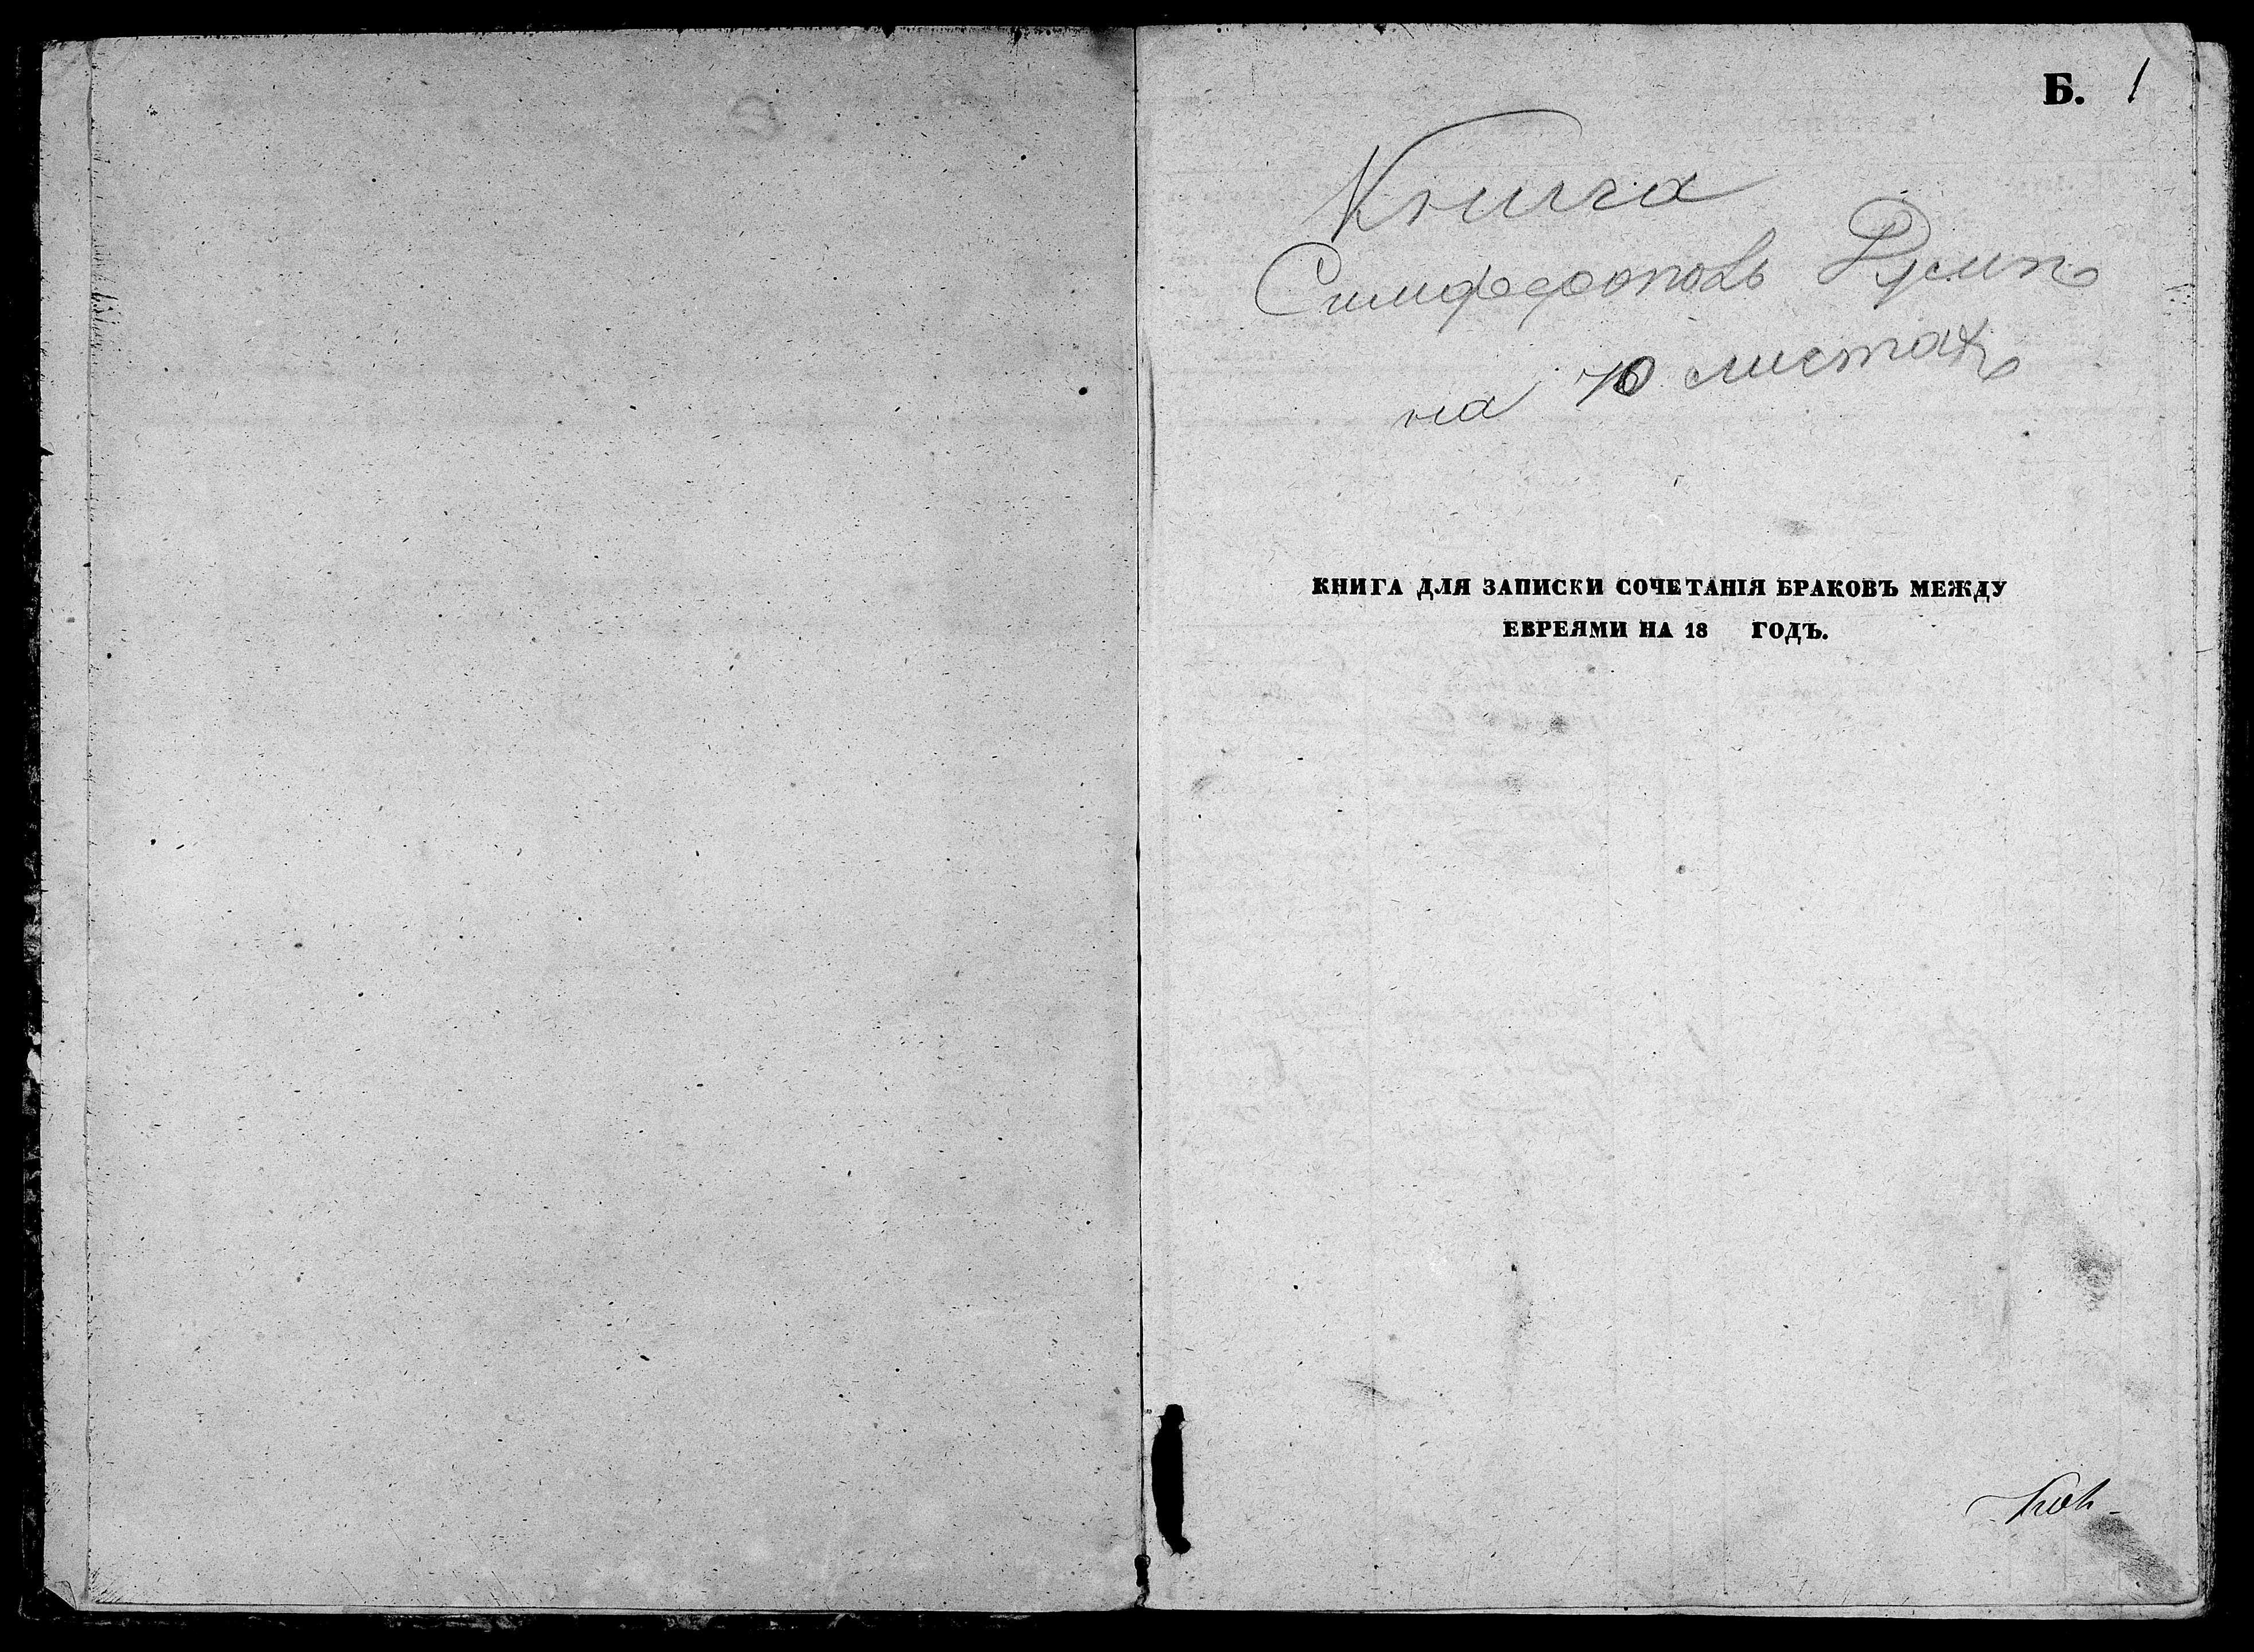 Б. 1
Книга
Симферополь
на 70 листахъ
КНИГА ДЛЯ ЗАПИСКИ СОЧЕТАНІЯ БРАКОВЪ МЕЖДУ
ЕВРЕЯМИ НА 18 ГОДЪ.